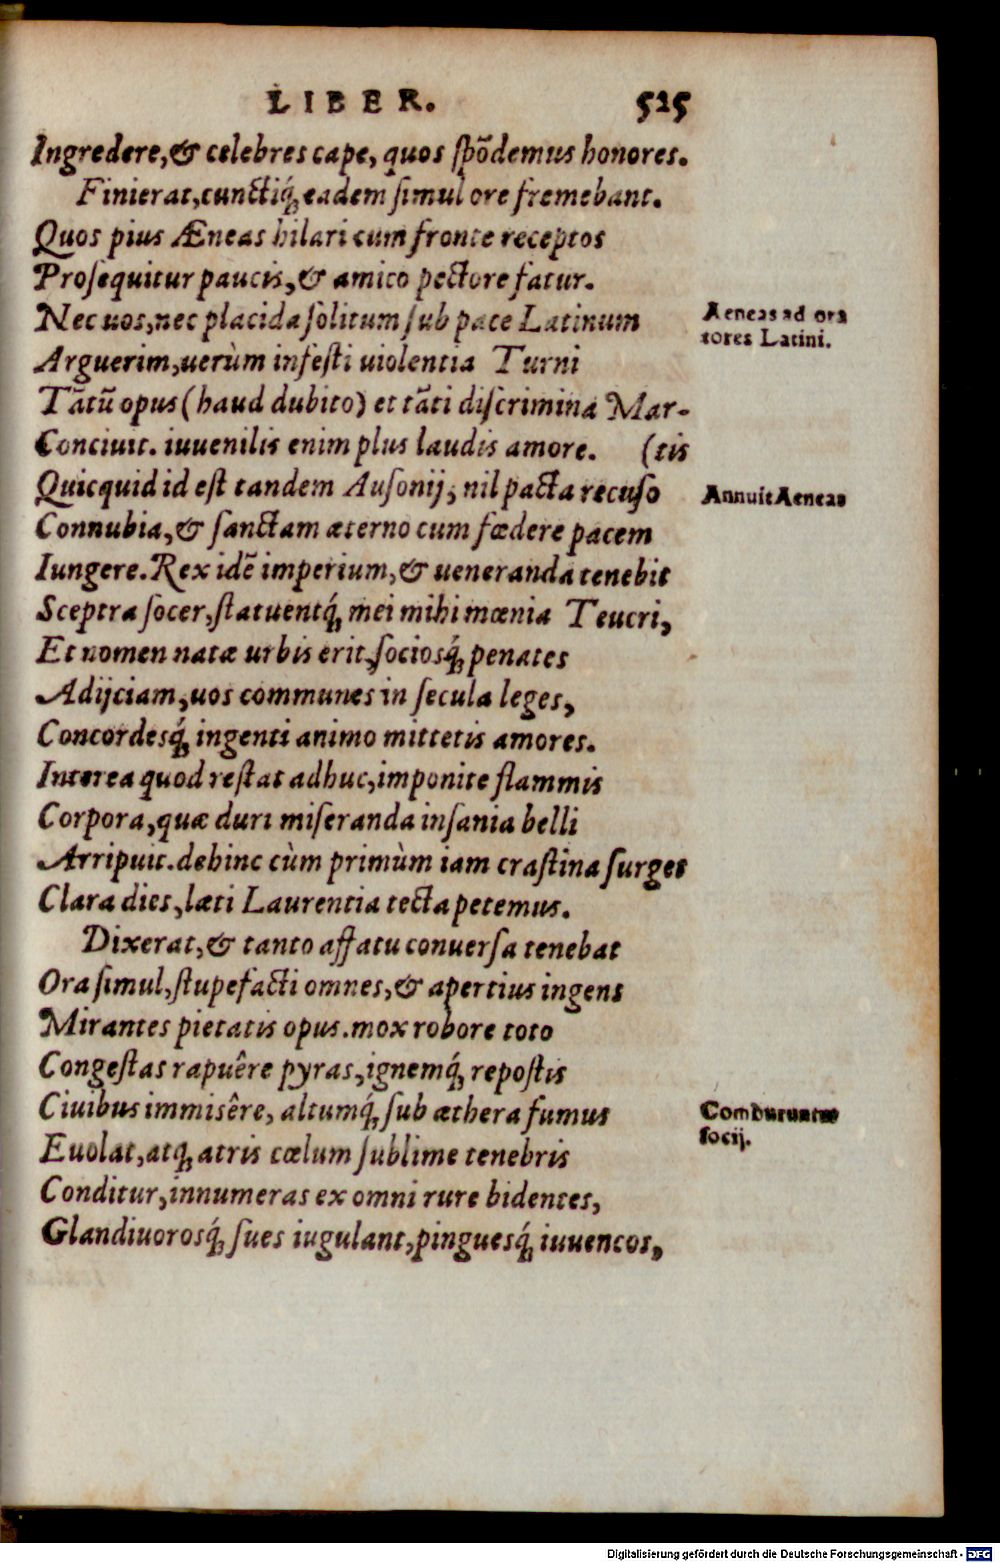 LIBER. 525
Ingredere, & celebres cape, quos spōdemus honores.
Finierat, cunctiq́; eadem simul ore fremebant.
Quos pius Æneas hilari cum fronte receptos
Prosequitur paucis, & amico pectore fatur.
Nec uos, nec placida solitum sub pace Latinum
Arguerim, uerùm infesti uiolentia Turni
Tātū opus (haud dubito) et tāti discrimina Mar-
Conciuit. iuuenilis enim plus laudis amore. (tis
Quicquid id est tandem Ausonij, nil pacta recuso
Connubia, & sanctam æterno cum fœdere pacem
Iungere. Rex idē imperium, & ueneranda tenebit
Sceptra socer, statuentq́; mei mihi mœnia Teucri,
Et nomen natæ urbis erit, sociosq́; penates
Adijciam, uos communes in secula leges,
Concordesq́; ingenti animo mittetis amores.
Interea quod restat adhuc, imponite flammis
Corpora, quæ duri miseranda insania belli
Arripuit. dehinc cùm primùm iam crastina surget
Clara dies, læti Laurentia tecta petemus.
Dixerat, & tanto affatu conuersa tenebat
Ora simul, stupefacti omnes, & apertius ingens
Mirantes pietatis opus. mox robore toto
Congestas rapuêre pyras, ignemq́; repostis
Ciuibus immisêre, altumq́; sub æthera fumus
Euolat, atq; atris cœlum sublime tenebris
Conditur, innumeras ex omni rure bidentes,
Glandiuorosq́; sues iugulant, pinguesq́; iuuencos,
Aeneas ad ora
tores Latini.
Annuit Aeneas
Comburuntur
socij.
Digitalisierung gefördert durch die Deutsche Forschungsgemeinschaft - DFG